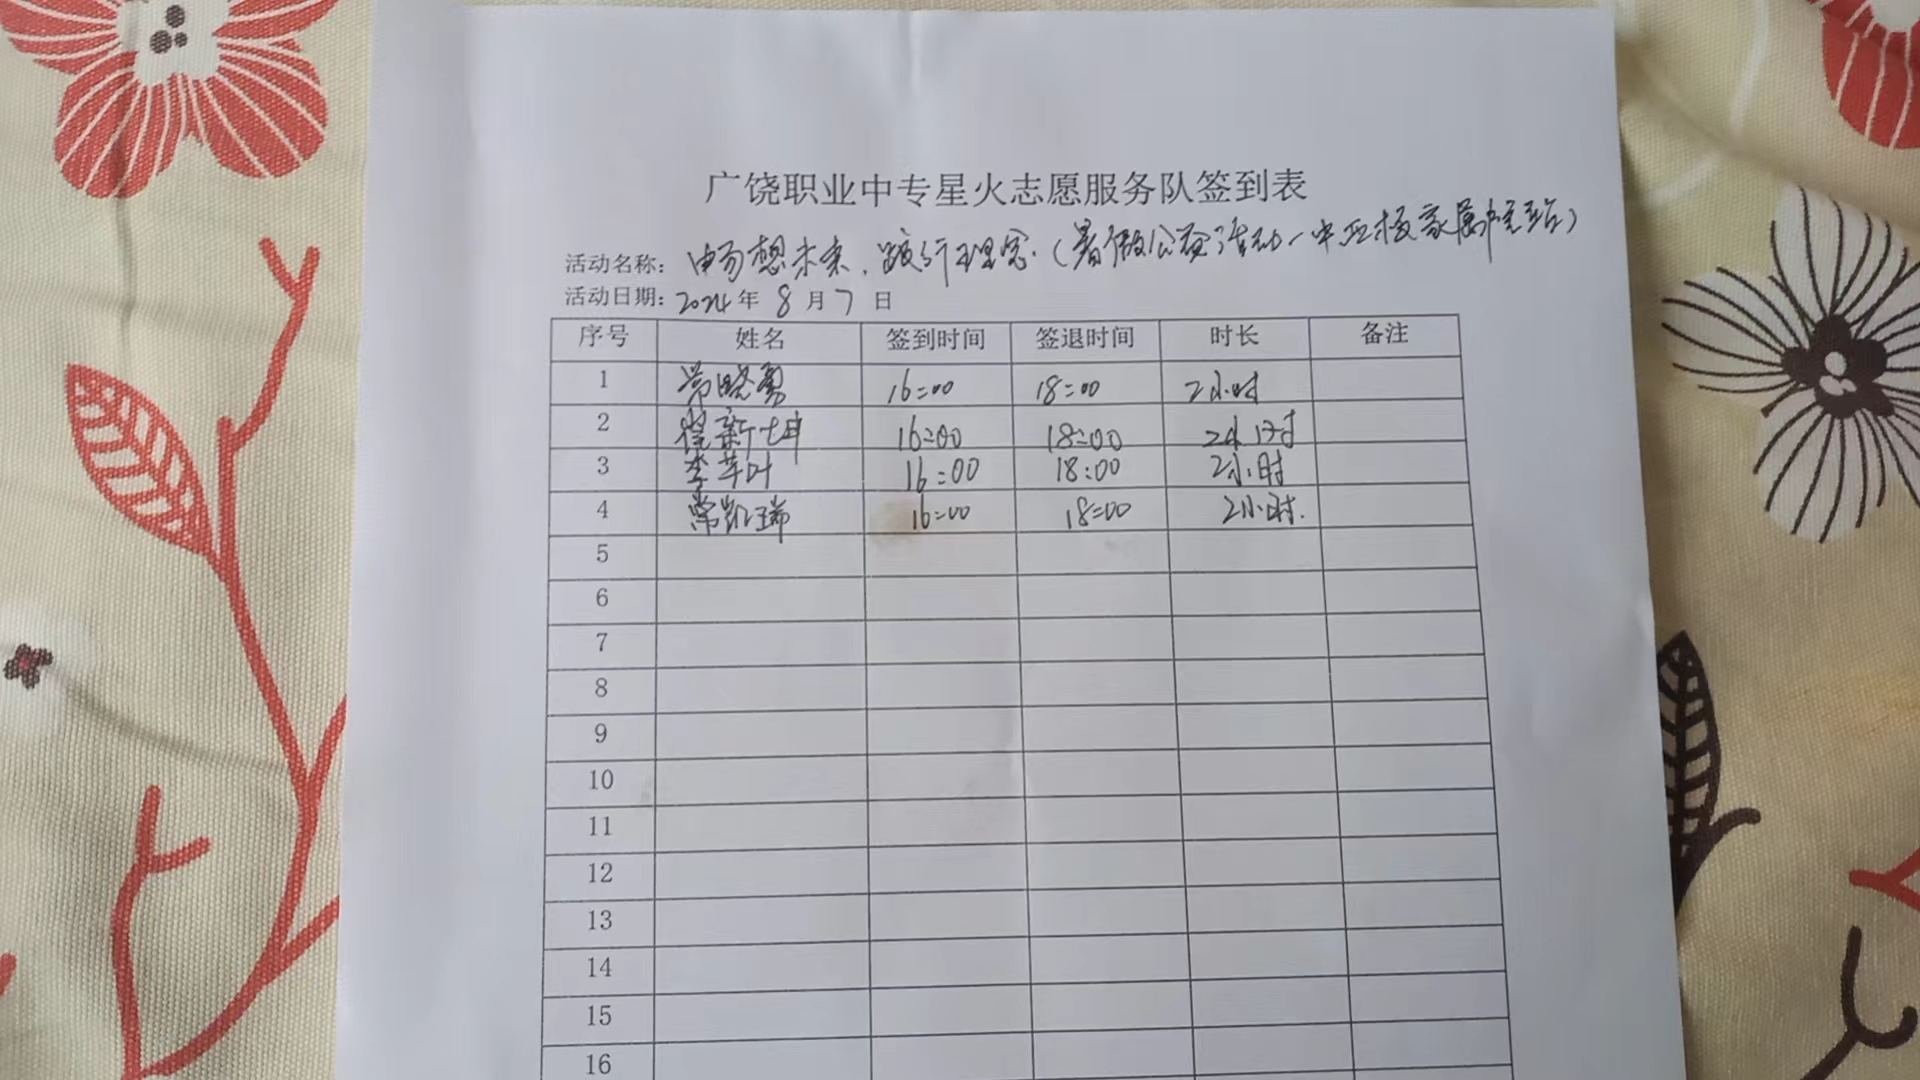 广饶职业中专星火志愿服务队签到表
活动名称: 畅想未来,践行理念.(暑假公益活动一中区校家属院站)
活动日期: 2024年 8月7日
序号 姓名 签到时间 签退时间 时长 备注
1 常晓勇 16:00 18:00 2小时
2 徐新坤 16:00 18:00 2小时
3 李芊叶 16:00 18:00 2小时
4 常凯瑞 16:00 18:00 2小时.
5
6
7
8
9
10
11
12
13
14
15
16